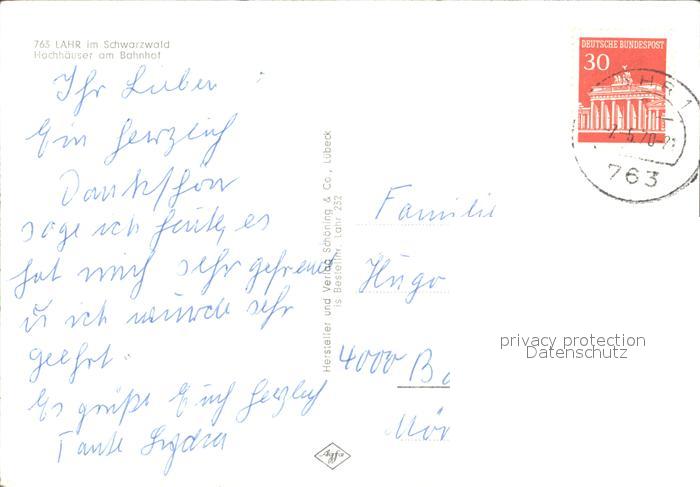 763 LAHR im Schwarzwald
Hochhäuser am Bahnhof
Ihr Lieben
Ein herzlich
Dankschön
sage ich heute, es
hat mich sehr gefreut
u ich wurde sehr
geehrt.
Es grüßt Euch herzlich
Tante Lydia
Hersteller und Verlag Schöning & Co., Lübeck
is Bestellnr. Lahr 252
DEUTSCHE BUNDESPOST
30
763
Familie
Hugo
privacy protection
Datenschutz
Agfa